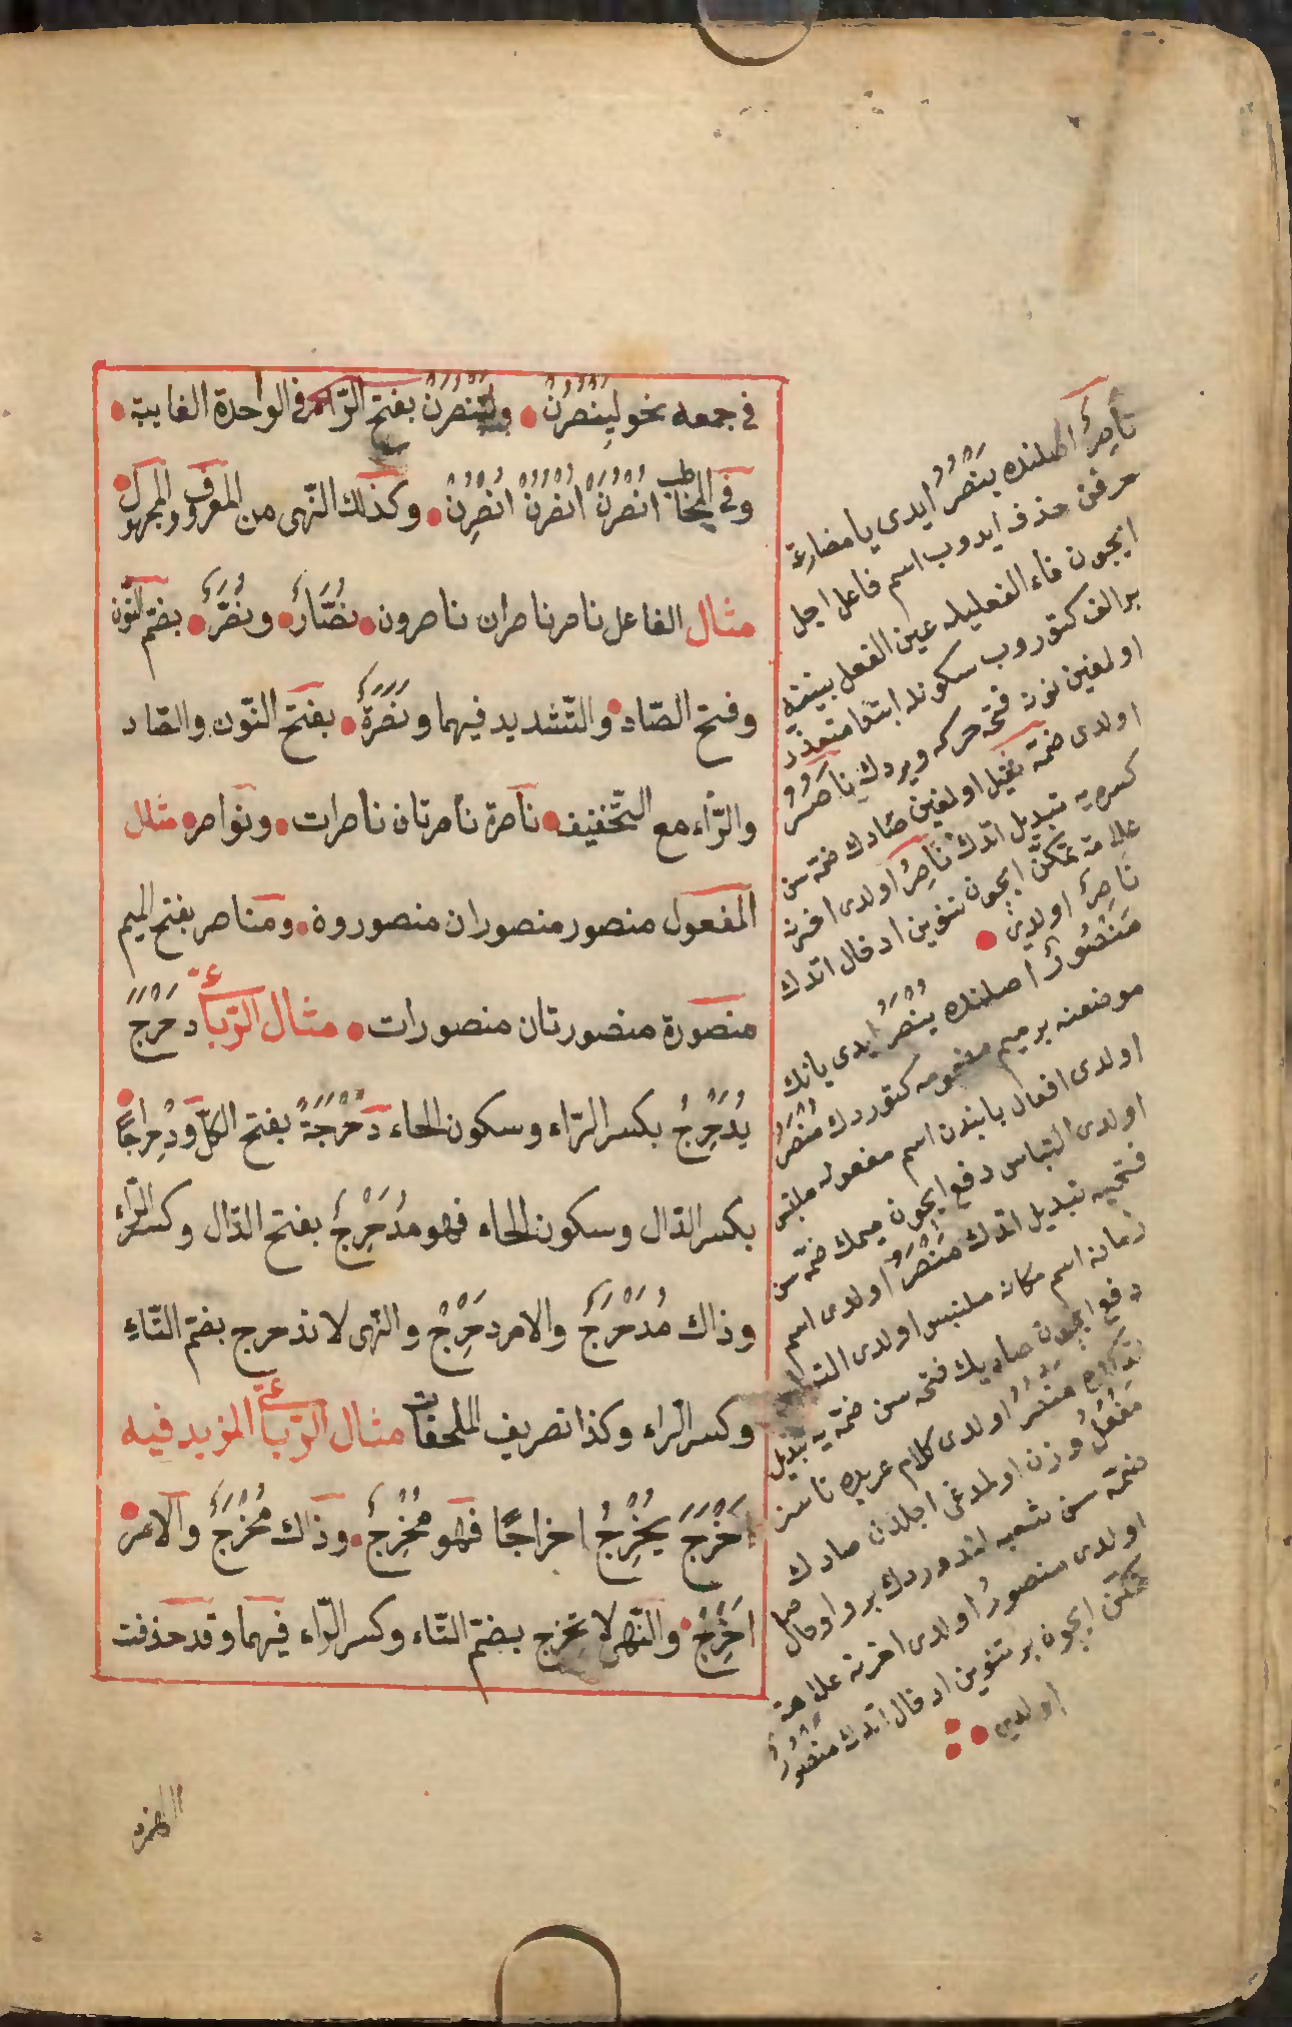 فى جمعه نحو لِيَنْصُرُنْ وَلْتَنْصُرَنْ بفتح الرّاء فى الواحدة الغايبة
وفى المخاطب اُنْصُرَنْ اُنْصُرُنْ اُنْصُرِنْ وكذلك النّهى من المعروف والمجهول
مثال الفاعل ناصر ناصران ناصرون نُصَّارٌ ونُصَّرٌ بضمّ النّون
وفتح الصّاد والتّشديد فيهما ونَصَرَةٌ بفتح النّون والصّاد
والرّاء مع التّخفيف ناصرة ناصرتان ناصرات ونواصر مثال
المفعول منصور منصوران منصورون ومناصر بفتح الميم
منصورة منصورتان منصورات مثال الرّباعىّ دَحْرَجَ
يُدَحْرِجُ بكسر الرّاء وسكون الحاء دَحْرَجَةً بفتح الكلّ ودِحْراجًا
بكسر الدّال وسكون الحاء فهو مُدَحْرِجٌ بفتح الدّال وكسر الرّاء
وذاك مُدَحْرَجٌ والامر دَحْرِجْ والنّهى لا تدحرج بضمّ التّاءِ
وكسر الرّاء وكذا تصريف الملحقات مثال الرّباعىّ المزيد فيه
اَخْرَجَ يُخْرِجُ اخراجًا فهو مُخْرِجٌ وذاك مُخْرَجٌ والامر
اَخْرِجْ والنّهى لا تخرج بضمّ التّاء وكسر الرّاء فيهما وقد حذفت
الهمزة
نَاصِرٌ اصلنده يَنْصُرُ ايدى يا مضارعة
حرفن حذف ايدوب اسم فاعل اجل
ايچون فاء الفعليله عين الفعل بيننه
بر الف كتوروب سكونله ابتدا متعذر
اولمغين نونه فتحه حركه ويردك نَاصُرُ
اولدى ضمّه ثقيل اولمغين صادك ضمّه سن
كسره يه تبديل اتدك نَاصِرُ اولدى اخرنه
علامة تمكّن ايچون تنوين ادخال اتدك
نَاصِرٌ اولدى
مَنْصُورٌ اصلنده يُنْصَرُ ايدى يانك
موضعنه بر ميم مضمومه كتوردك مُنْصَرُ
اولدى افعال بابندن اسم مفعوله ملتبس
اولدى التباس دفع ايچون ميمك ضمّه سن
فتحيه تبديل اتدك مَنْصَرُ اولدى اسم
زمانه اسم مكانه ملتبس اولدى التباس
دفع ايچون صاديك فتحه سن ضمّه يه تبديل
مَنْصُرُ اولدى كلام عربده تاسز
مَفْعُلُ وزن اولمدغى اجلدن صادك
ضمّه سن اشباع اتدوردك بر واو حاصل
اولدى منصورُ اولدى اخرنه علامة
تمكّن ايچون بر تنوين ادخال اتدك منصورٌ
اولدى